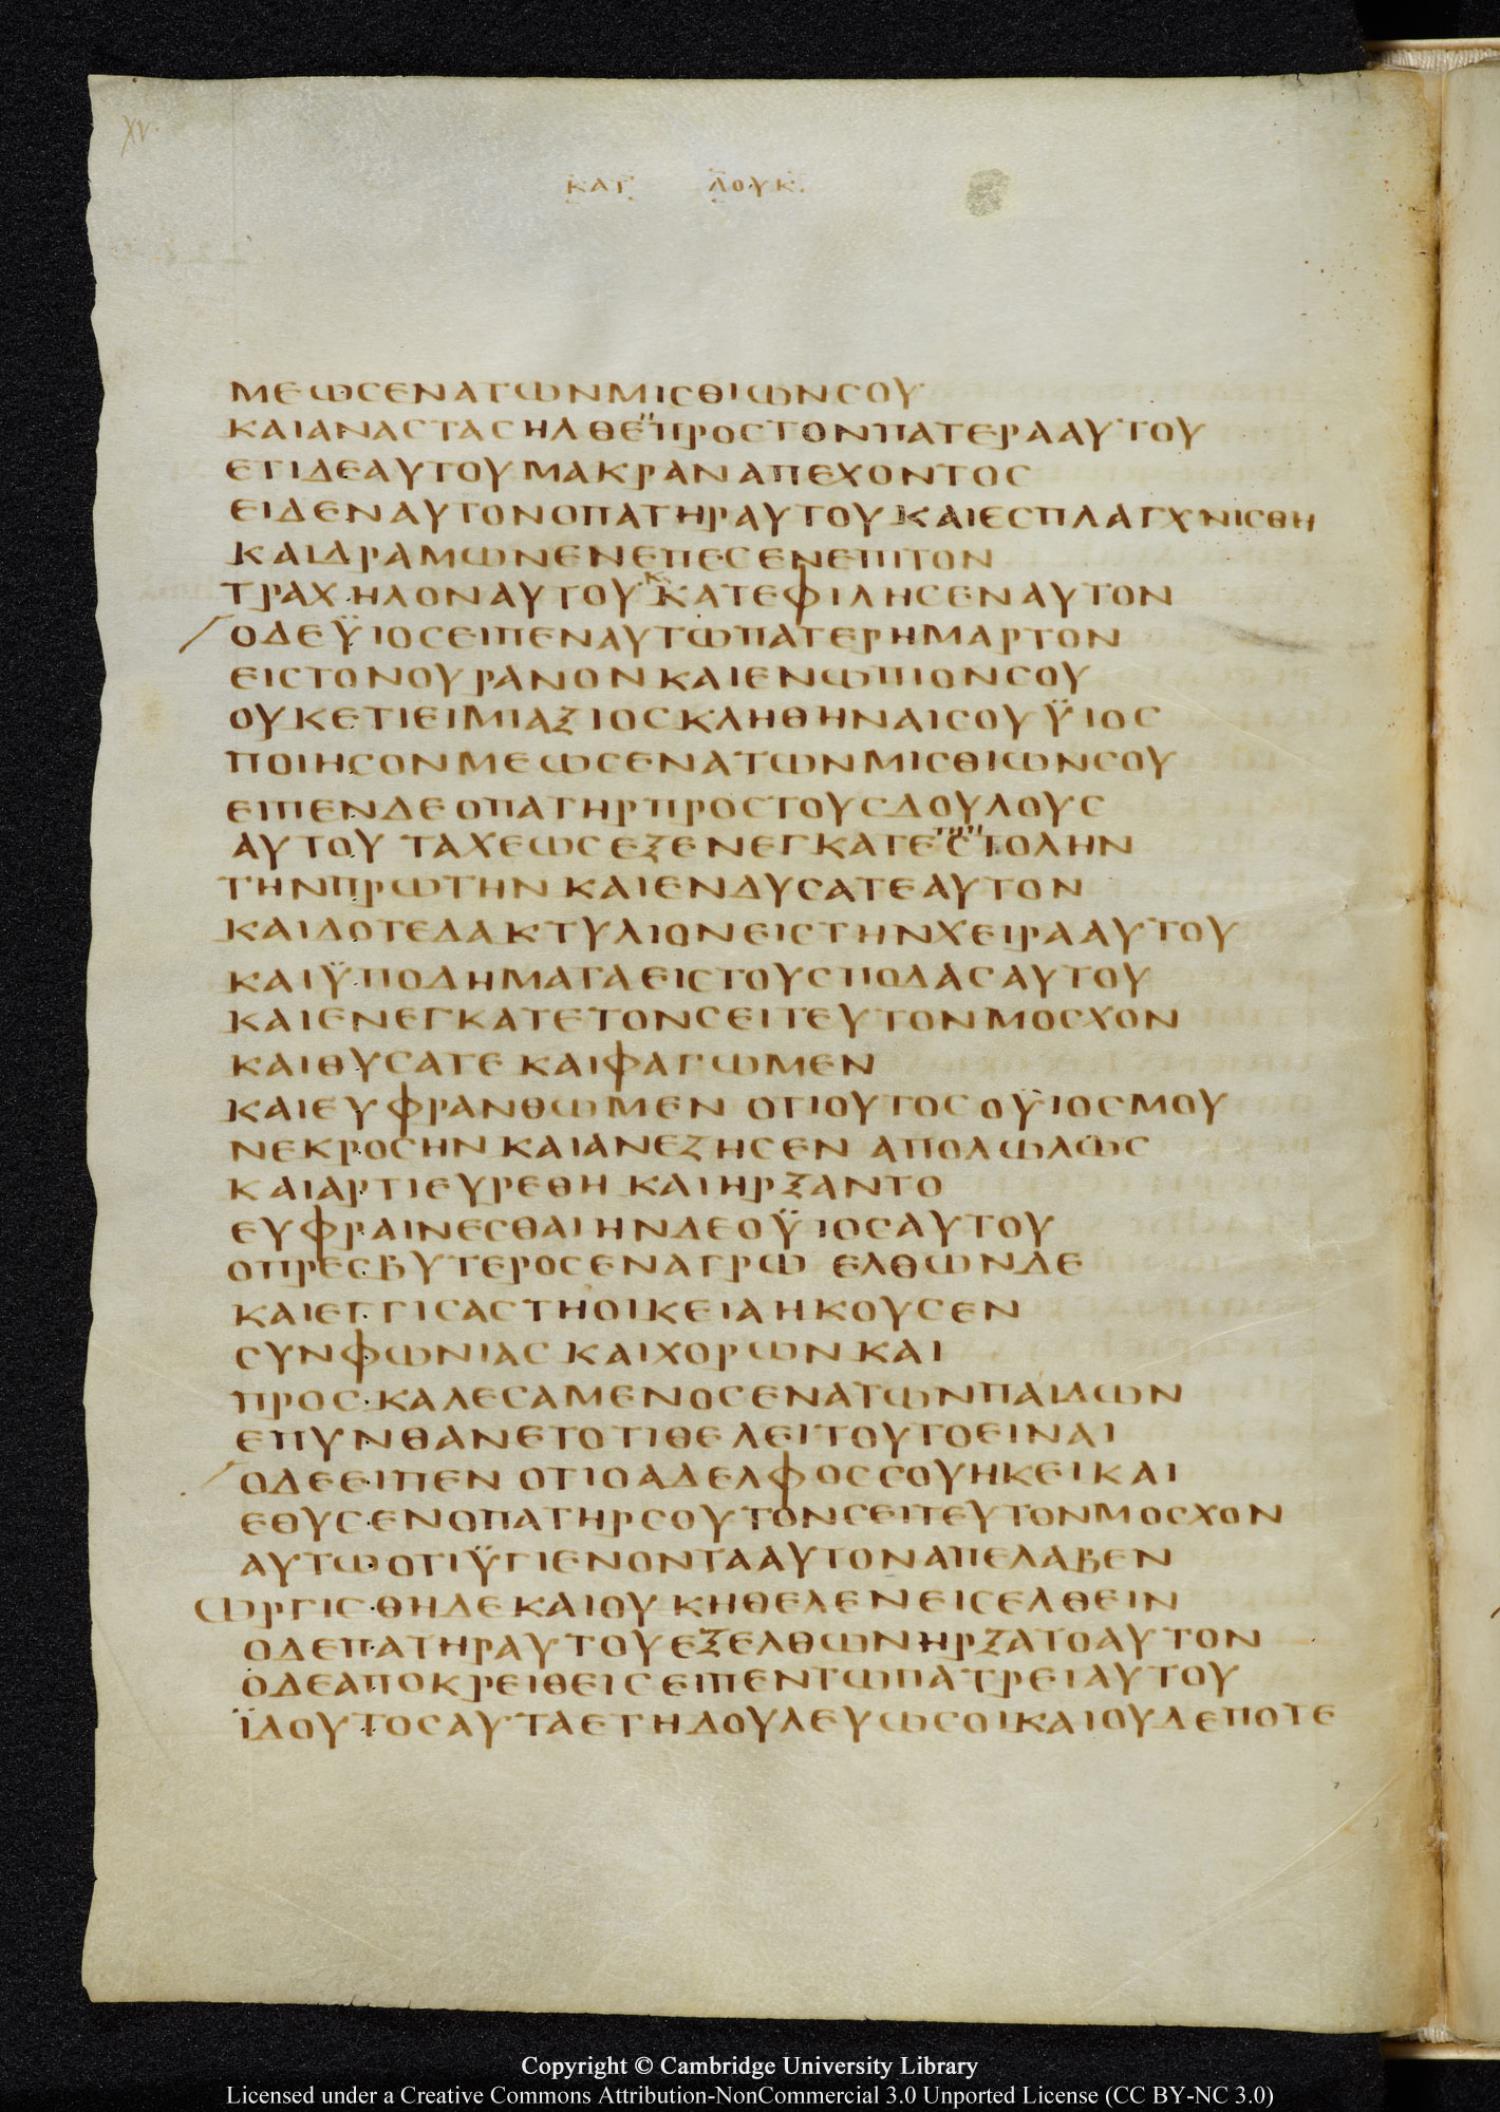 XV.
ΚΑΤ ΛΟΥΚ.
ΜΕΩϹΕΝΑΤΩΝΜΙϹΘΙΩΝϹΟΥ
ΚΑΙΑΝΑϹΤΑϹΗΛΘΕΠΡΟϹΤΟΝΠΑΤΕΡΑΑΥΤΟΥ
ΕΤΙΔΕΑΥΤΟΥΜΑΚΡΑΝΑΠΕΧΟΝΤΟϹ
ΕΙΔΕΝΑΥΤΟΝΟΠΑΤΗΡΑΥΤΟΥΚΑΙΕϹΠΛΑΓΧΝΙϹΘΗ
ΚΑΙΔΡΑΜΩΝΕΝΕΠΕϹΕΝΕΠΙΤΟΝ
ΤΡΑΧΗΛΟΝΑΥΤΟΥΚΑΤΕΦΙΛΗϹΕΝΑΥΤΟΝ
ΟΔΕΫΙΟϹΕΙΠΕΝΑΥΤΩΠΑΤΕΡΗΜΑΡΤΟΝ
ΕΙϹΤΟΝΟΥΡΑΝΟΝΚΑΙΕΝΩΠΙΟΝϹΟΥ
ΟΥΚΕΤΙΕΙΜΙΑΞΙΟϹΚΛΗΘΗΝΑΙϹΟΥΫΙΟϹ
ΠΟΙΗϹΟΝΜΕΩϹΕΝΑΤΩΝΜΙϹΘΙΩΝϹΟΥ
ΕΙΠΕΝΔΕΟΠΑΤΗΡΠΡΟϹΤΟΥϹΔΟΥΛΟΥϹ
ΑΥΤΟΥ ΤΑΧΕΩϹΕΞΕΝΕΓΚΑΤΕϹΤΟΛΗΝ
ΤΗΝΠΡΩΤΗΝ ΚΑΙΕΝΔΥϹΑΤΕΑΥΤΟΝ
ΚΑΙΔΟΤΕΔΑΚΤΥΛΙΟΝΕΙϹΤΗΝΧΕΙΡΑΑΥΤΟΥ
ΚΑΙΫΠΟΔΗΜΑΤΑΕΙϹΤΟΥϹΠΟΔΑϹΑΥΤΟΥ
ΚΑΙΕΝΕΓΚΑΤΕΤΟΝϹΕΙΤΕΥΤΟΝΜΟϹΧΟΝ
ΚΑΙΘΥϹΑΤΕ ΚΑΙΦΑΓΩΜΕΝ
ΚΑΙΕΥΦΡΑΝΘΩΜΕΝ ΟΤΙΟΥΤΟϹΟΫΙΟϹΜΟΥ
ΝΕΚΡΟϹΗΝ ΚΑΙΑΝΕΖΗϹΕΝ ΑΠΟΛΩΛΩϹ
ΚΑΙΑΡΤΙΕΥΡΕΘΗ ΚΑΙΗΡΞΑΝΤΟ
ΕΥΦΡΑΙΝΕϹΘΑΙΗΝΔΕΟΫΙΟϹΑΥΤΟΥ
ΟΠΡΕϹΒΥΤΕΡΟϹΕΝΑΓΡΩ ΕΛΘΩΝΔΕ
ΚΑΙΕΓΓΙϹΑϹΤΗΟΙΚΕΙΑΗΚΟΥϹΕΝ
ϹΥΝΦΩΝΙΑϹ ΚΑΙΧΟΡΩΝ ΚΑΙ
ΠΡΟϹΚΑΛΕϹΑΜΕΝΟϹΕΝΑΤΩΝΠΑΙΔΩΝ
ΕΠΥΝΘΑΝΕΤΟΤΙΘΕΛΕΙΤΟΥΤΟΕΙΝΑΙ
ΟΔΕΕΙΠΕΝ ΟΤΙΟΑΔΕΛΦΟϹϹΟΥΗΚΕΙΚΑΙ
ΕΘΥϹΕΝΟΠΑΤΗΡϹΟΥΤΟΝϹΕΙΤΕΥΤΟΝΜΟϹΧΟΝ
ΑΥΤΩΟΤΙΫΓΙΕΝΟΝΤΑΑΥΤΟΝΑΠΕΛΑΒΕΝ
ΩΡΓΙϹΘΗΔΕΚΑΙΟΥΚΗΘΕΛΕΝΕΙϹΕΛΘΕΙΝ
ΟΔΕΠΑΤΗΡΑΥΤΟΥΕΞΕΛΘΩΝΗΡΖΑΤΟΑΥΤΟΝ
ΟΔΕΑΠΟΚΡΕΙΘΕΙϹΕΙΠΕΝΤΩΠΑΤΡΕΙΑΥΤΟΥ
ΪΔΟΥΤΟϹΑΥΤΑΕΤΗΔΟΥΛΕΥΩϹΟΙΚΑΙΟΥΔΕΠΟΤΕ
Copyright © Cambridge University Library
Licensed under a Creative Commons Attribution-NonCommercial 3.0 Unported License (CC BY-NC 3.0)